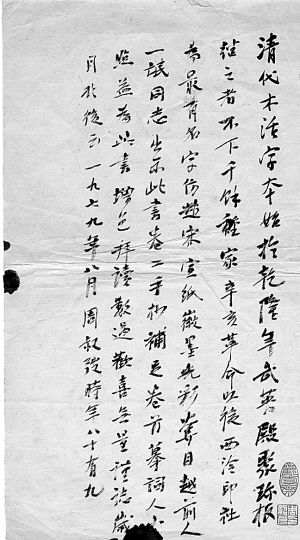 清代木活字本始於乾隆年武英殿聚珍板
繼之者不下千餘種家辛亥革命以後西泠印社
為最著名字仿趙宋宣紙徽墨光彩奪目越前人
一氓同志出示此書卷二手抄補足卷首摹詞人小
照益為此書增色拜讀數過歡喜無量謹誌歲
月於後云一九七九年八月周叔弢時年八十有九